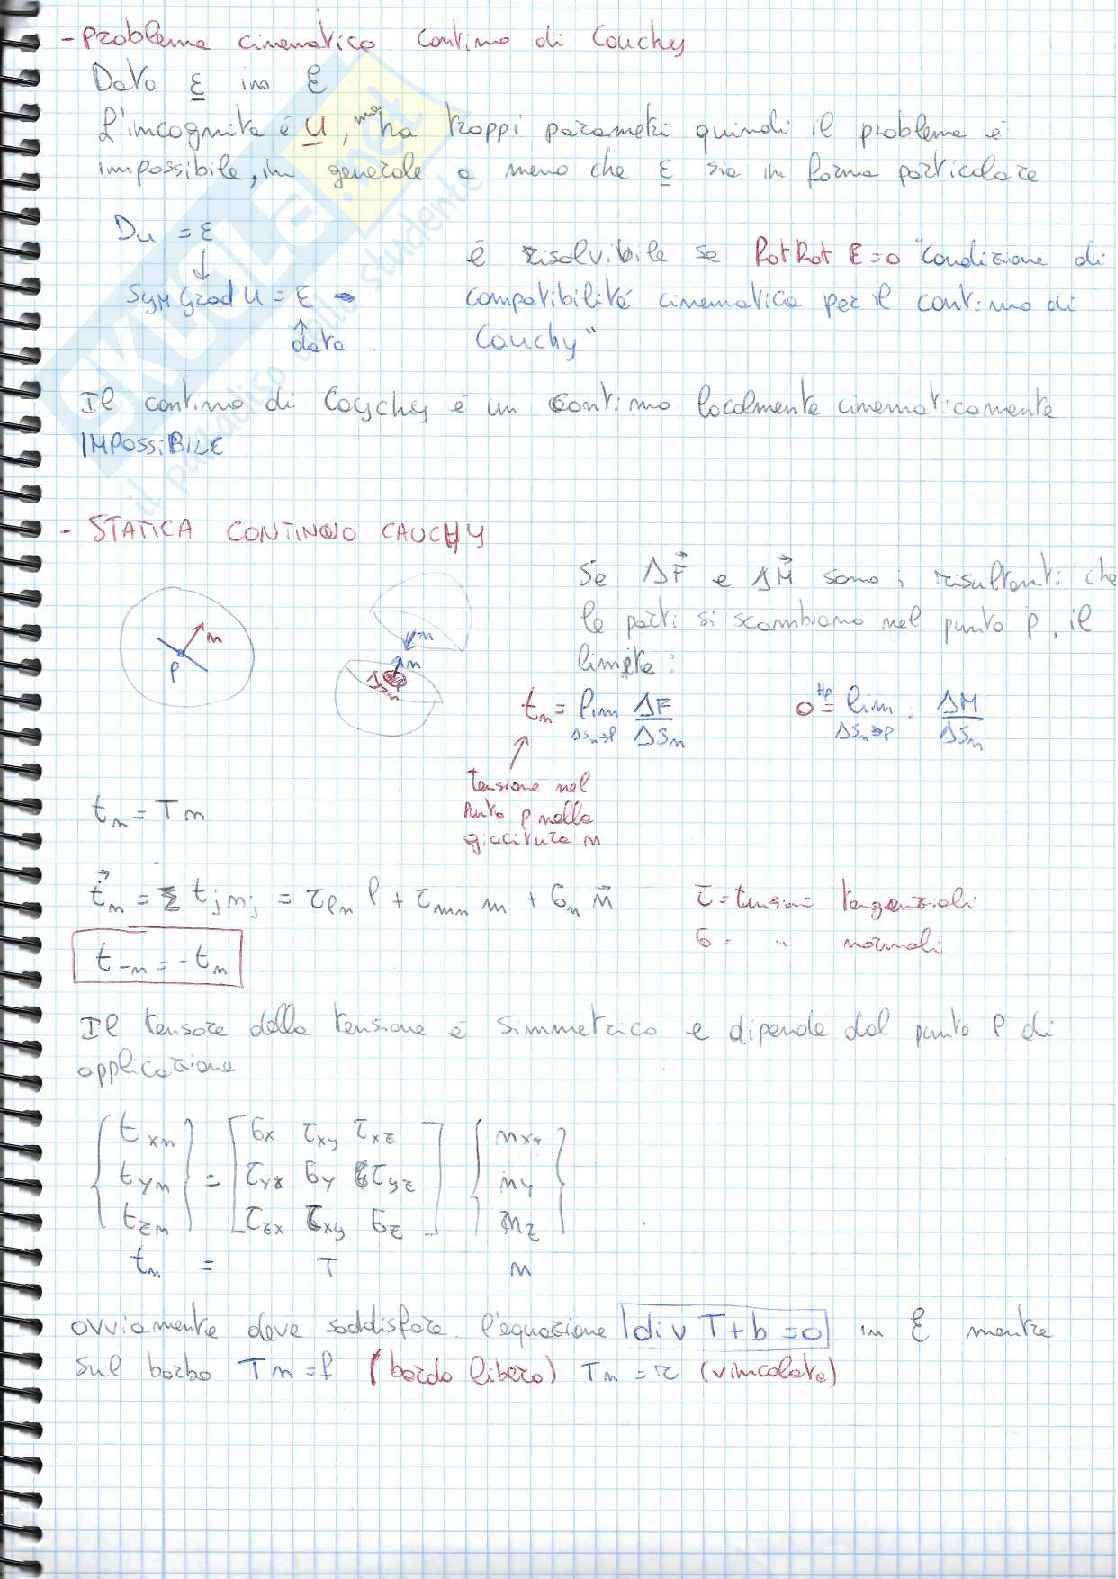 - Problema cinematico continuo di Cauchy
Dato ε in ℰ
L'incognita è u, ma ha troppi parametri quindi il problema è
impossibile, in generale a meno che ε sia in forma particolare
Du = ε
↓
Sym Grad u = ε →
↑
dato
è risolvibile se Rot Rot E = 0 "Condizione di
compatibilità cinematica per il continuo di
Cauchy"
Il continuo di Cauchy è un continuo localmente cinematicamente
IMPOSSIBILE
- STATICA CONTINUO CAUCHY
n
P
n
n
Se ΔF⃗ e ΔM⃗ sono i risultanti che
le parti si scambiano nel punto P, il
limite:
tₙ = lim ΔF/ΔSₙ
ΔSₙ→P
0 =ᵗᵖ lim ΔM/ΔSₙ
ΔSₙ→P
tensione nel
Punto P nella
giacitura n
tₙ = T n
t⃗ₙ = Σ tⱼ nⱼ = τₗₙ l + τₘₙ m + σₙ n⃗
τ = tensioni tangenziali
σ = " normali
t₋ₙ = - tₙ
Il tensore della tensione è simmetrico e dipende dal punto P di
applicazione
{ txn } = [ σx τxy τxz ] { nx }
{ tyn } = [ τyx σy τyz ] { ny }
{ tzn } = [ τzx τxy σz ] { nz }
tₙ = T n
ovviamente deve soddisfare l'equazione div T + b = 0 in ℰ mentre
sul bordo T n = f (bordo libero) T n = r (vincolato)
SKUOLA.net
il paradiso dello studente